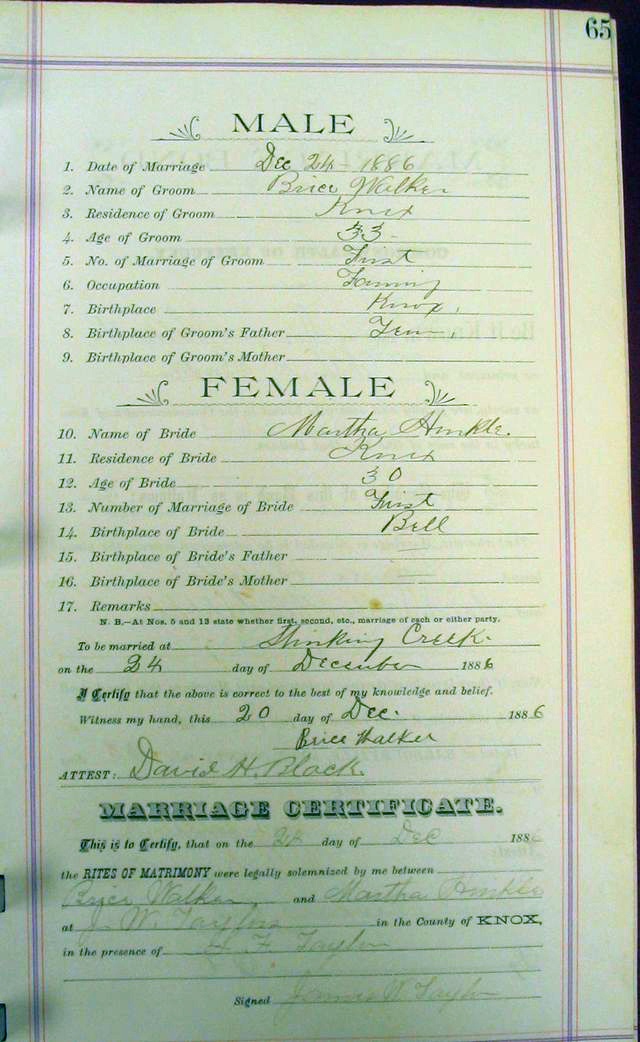 65
MALE
1. Date of Marriage Dec 24 1886
2. Name of Groom Brice Walker
3. Residence of Groom Knox
4. Age of Groom 33
5. No. of Marriage of Groom First
6. Occupation Farming
7. Birthplace Knox,
8. Birthplace of Groom's Father Tenn.
9. Birthplace of Groom's Mother
FEMALE
10. Name of Bride Martha Hinkle.
11. Residence of Bride Knox
12. Age of Bride 30
13. Number of Marriage of Bride First
14. Birthplace of Bride Bell
15. Birthplace of Bride's Father
16. Birthplace of Bride's Mother
17. Remarks
N. B.—At Nos. 5 and 13 state whether first, second, etc., marriage of each or either party.
To be married at Stinking Creek.
on the 24 day of December 1886
I Certify that the above is correct to the best of my knowledge and belief.
Witness my hand, this 20 day of Dec. 1886
Brice Walker
ATTEST: David H. Black.
MARRIAGE CERTIFICATE.
This is to Certify, that on the 24 day of Dec 1886
the RITES OF MATRIMONY were legally solemnized by me between
Brice Walker and Martha Hinkle
at J. W. Taylors in the County of KNOX,
in the presence of F Taylor
Signed W Taylor